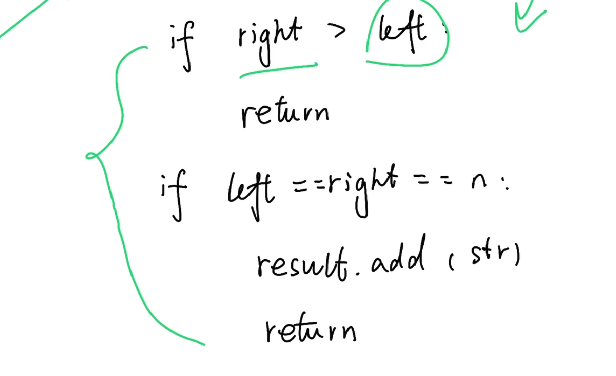 if right > left:
return
if left == right == n:
result.add (str)
return